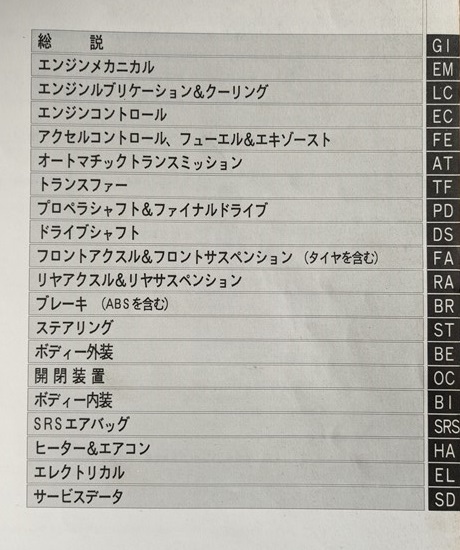 総　　説 GI
エンジンメカニカル EM
エンジンルブリケーション&クーリング LC
エンジンコントロール EC
アクセルコントロール、フューエル&エキゾースト FE
オートマチックトランスミッション AT
トランスファー TF
プロペラシャフト&ファイナルドライブ PD
ドライブシャフト DS
フロントアクスル&フロントサスペンション（タイヤを含む） FA
リヤアクスル&リヤサスペンション RA
ブレーキ（ABSを含む） BR
ステアリング ST
ボディー外装 BE
開閉装置 OC
ボディー内装 BI
SRSエアバッグ SRS
ヒーター&エアコン HA
エレクトリカル EL
サービスデータ SD